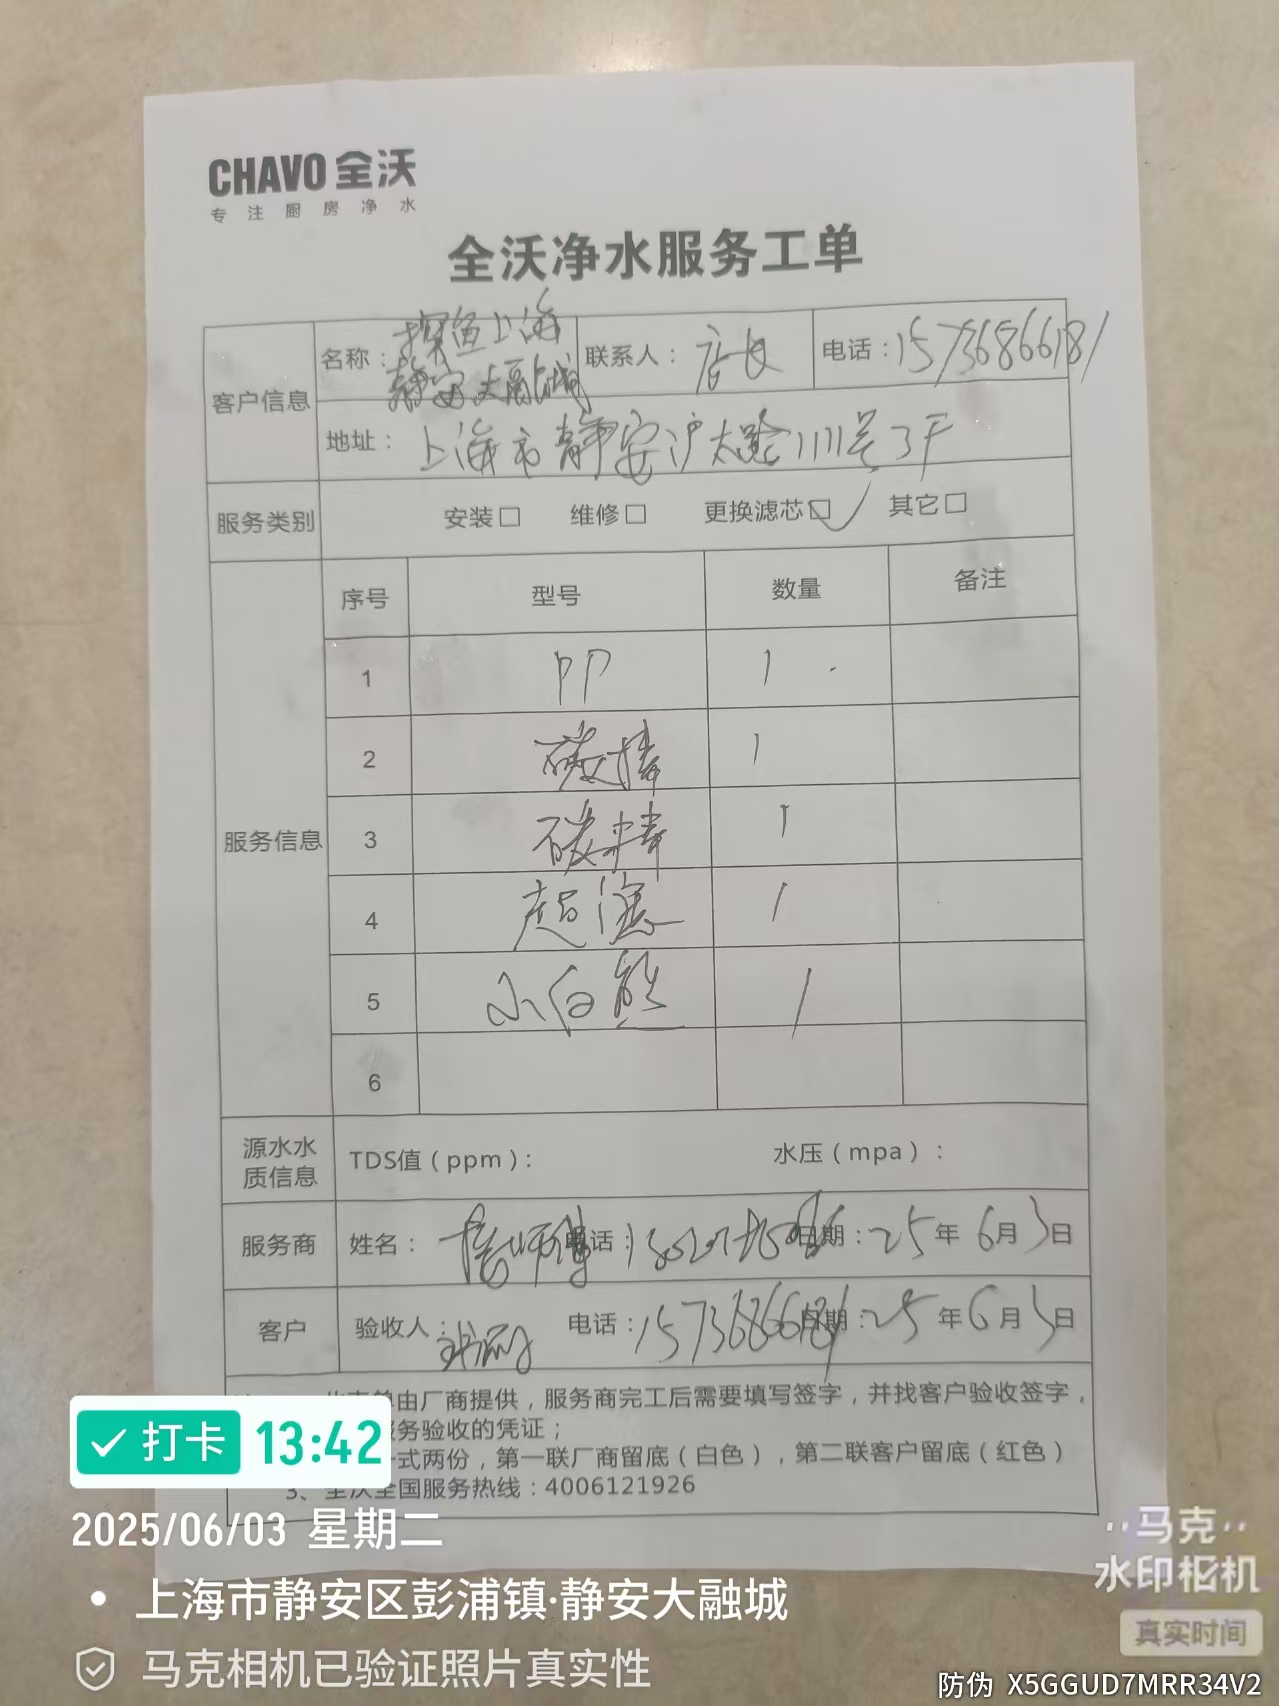 CHAVO 全沃
专注厨房净水
全沃净水服务工单
客户信息
名称：探鱼上海
静安大融城
联系人：店长
电话：15736866181
地址：上海市静安沪太路1111号3F
服务类别 安装□ 维修□ 更换滤芯□✓ 其它□
服务信息
序号 型号 数量 备注
1 PP 1
2 碳棒 1
3 碳棒 1
4 超滤 1
5 小白熊 1
6
源水水质信息 TDS值（ppm）： 水压（mpa）：
服务商 姓名： 师傅 电话： 日期：25年6月3日
客户 验收人： 电话：15736866181 日期：25年6月3日
单由厂商提供，服务商完工后需要填写签字，并找客户验收签字，
服务验收的凭证；
一式两份，第一联厂商留底（白色），第二联客户留底（红色）
3、全沃全国服务热线：4006121926
✓打卡 13:42
2025/06/03 星期二
• 上海市静安区彭浦镇·静安大融城
马克相机已验证照片真实性
马克
水印相机
真实时间
防伪 X5GGUD7MRR34V2